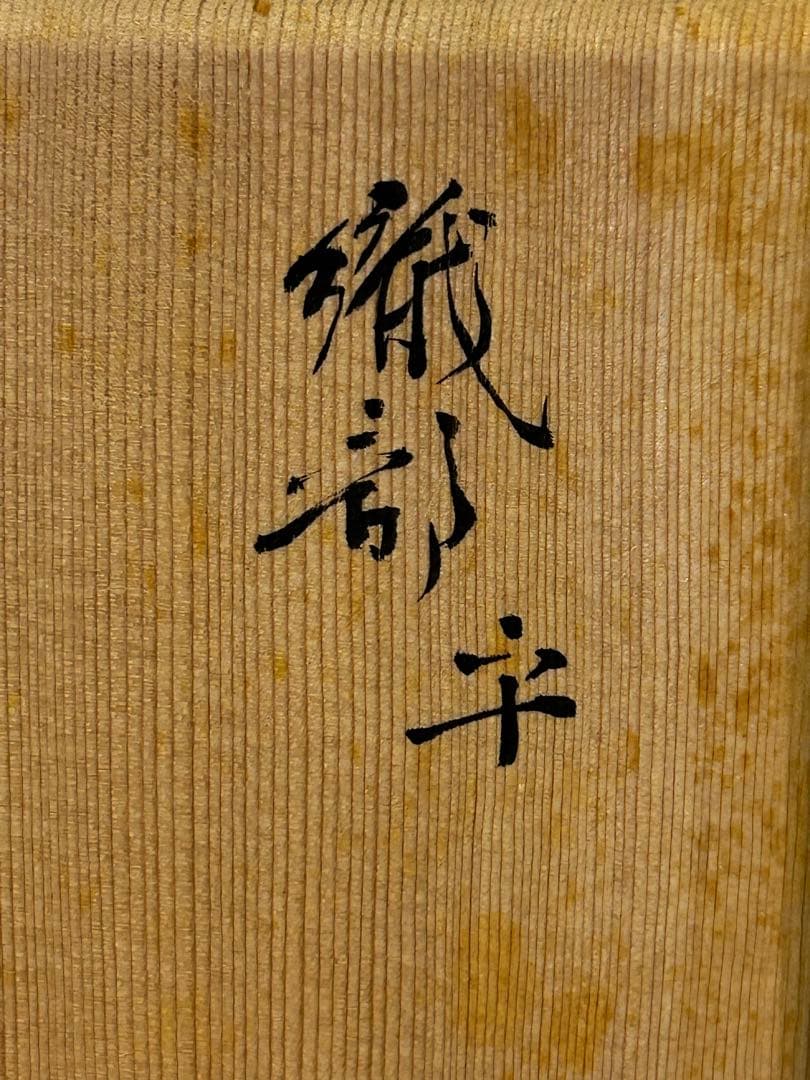 織部
平